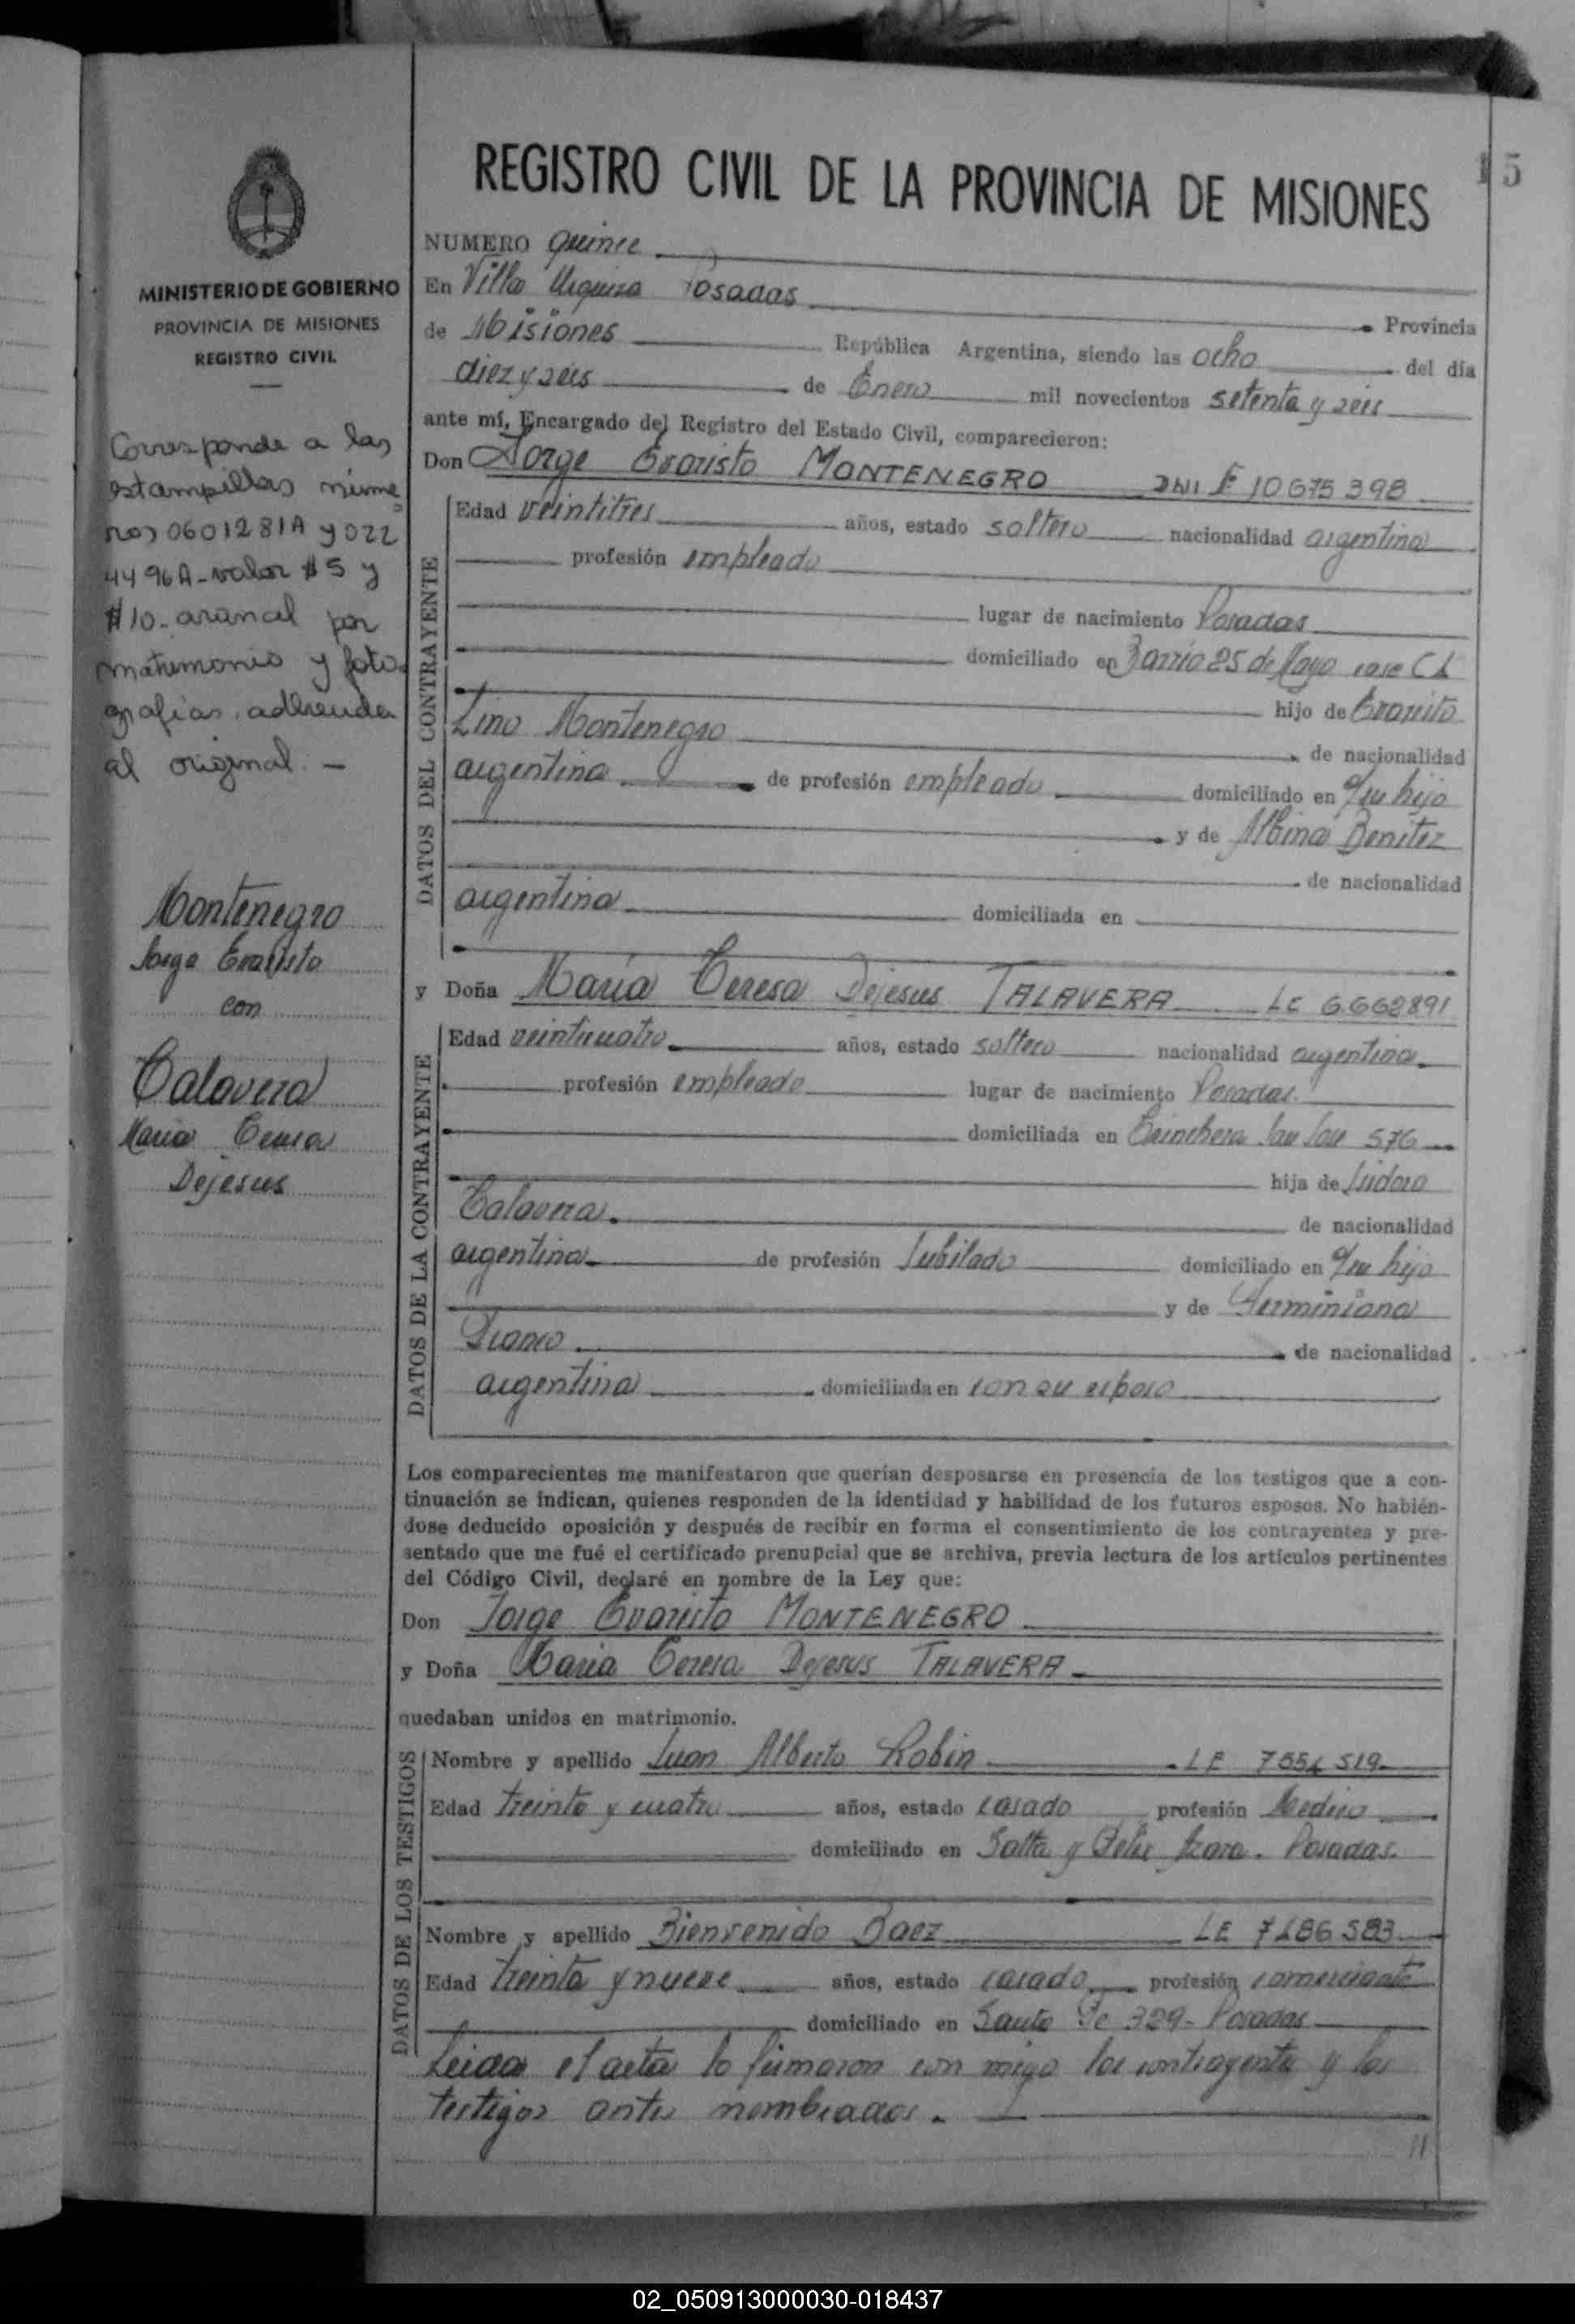 15
REGISTRO CIVIL DE LA PROVINCIA DE MISIONES
MINISTERIO DE GOBIERNO
PROVINCIA DE MISIONES
REGISTRO CIVIL
Corresponde a las
estampillas núme
ros 0601281A y 022
4496A - valor $5 y
$10 - arancel por
matrimonio y foto
grafías, adherida
al original. -
Montenegro
Jorge Evaristo
con
Talavera
Maria Teresa
Dejesus
NUMERO Quince
En Villa Urquiza Posadas
Provincia
de Misiones República Argentina, siendo las ocho del día
diez y seis de Enero mil novecientos setenta y seis
ante mí, Encargado del Registro del Estado Civil, comparecieron:
Don Jorge Evaristo MONTENEGRO DNI F 10675398
DATOS DEL CONTRAYENTE
Edad veintitres años, estado soltero nacionalidad argentina
profesión empleado
lugar de nacimiento Posadas
domiciliado en Barrio 25 de Mayo case
hijo de Evaristo
Lino Montenegro de nacionalidad
argentina de profesión empleado domiciliado en hijo
y de Albina Benitez
de nacionalidad
argentina domiciliada en
y Doña María Teresa Dejesus TALAVERA LC 6662891
DATOS DE LA CONTRAYENTE
Edad veinticuatro años, estado soltera nacionalidad argentina
profesión empleada lugar de nacimiento Posadas
domiciliada en Trinchera San José 576
hija de Isidoro
Talavera de nacionalidad
argentina de profesión Jubilado domiciliado en hijo
y de Herminiana
Franco de nacionalidad
argentina domiciliada en con su esposo
Los comparecientes me manifestaron que querían desposarse en presencia de los testigos que a con-
tinuación se indican, quienes responden de la identidad y habilidad de los futuros esposos. No habién-
dose deducido oposición y después de recibir en forma el consentimiento de los contrayentes y pre-
sentado que me fué el certificado prenupcial que se archiva, previa lectura de los artículos pertinentes
del Código Civil, declaré en nombre de la Ley que:
Don Jorge Evaristo MONTENEGRO
y Doña Maria Teresa Dejesus TALAVERA
quedaban unidos en matrimonio.
DATOS DE LOS TESTIGOS
Nombre y apellido Juan Alberto Robin LE 7554519
Edad treinta y cuatro años, estado casado profesión Medico
domiciliado en Salta y Felix Azara. Posadas.
Nombre y apellido Bienvenido Baez LE 7186583
Edad treinta y nueve años, estado casado profesión comerciante
domiciliado en Santa Fe 329 - Posadas
Leida el acta lo firmaron con migo los contrayente y los
testigos antes nombrados.
02_050913000030-018437